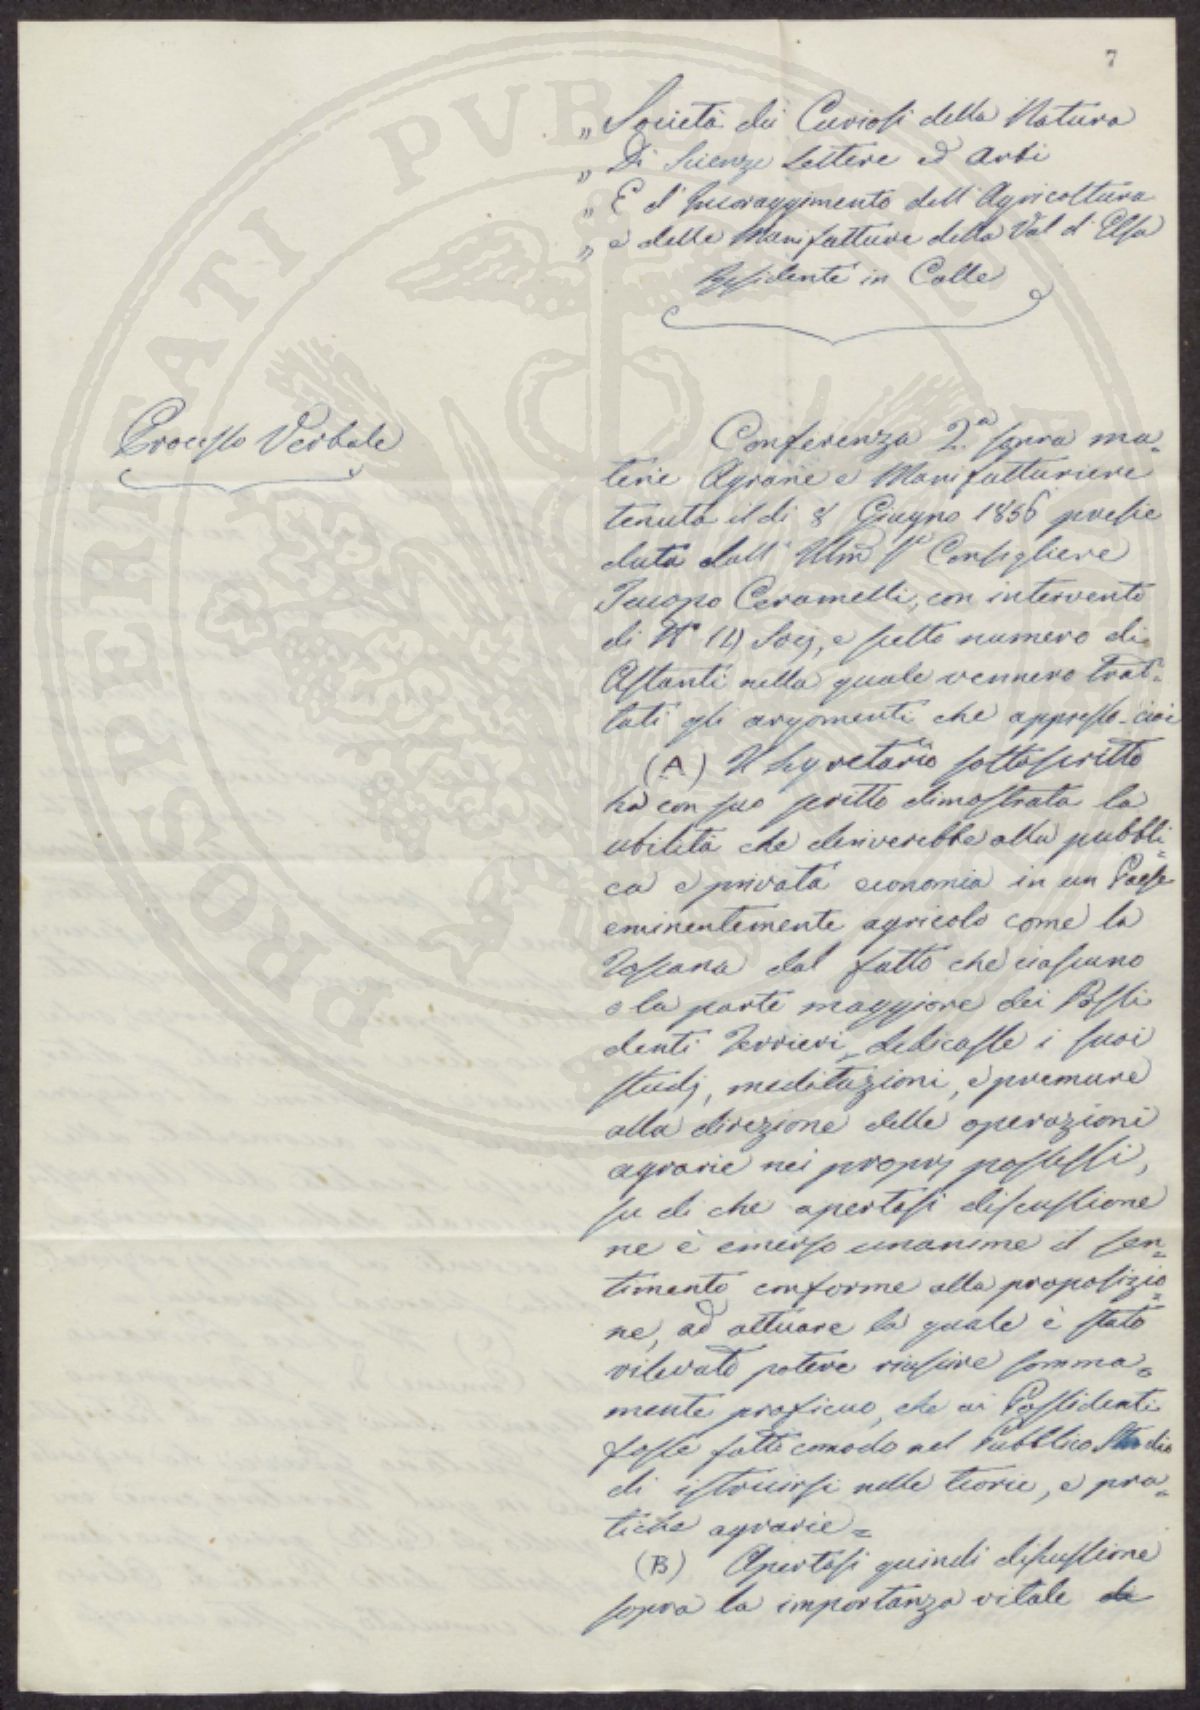 7
„ Società dei Curiosi della Natura
„ Di Scienze Lettere ed Arti
„ E d'Incoraggimento dell'Agricoltura
„ e delle Manifatture della Val d'Elsa
Residente in Colle
Processo Verbale
Conferenza 2.a sopra ma=
terie Agrarie e Manifatturiere
tenuta il di 8 Giugno 1856 presie
duta dall' Illmo Sr Consigliere
Jacopo Ceramelli, con intervento
di No 14 Socj, e scelto numero di
Astanti nella quale vennero trat=
tati gli argomenti che appresso - cioè
(A) Il Segretario sottoscritto
ha con suo scritto dimostrata la
utilità che deriverebbe alla pubbli=
ca e privata economia in un Paese
eminentemente agricolo come la
Toscana dal fatto che ciascuno
o la parte maggiore dei Possi
denti Terrieri, dedicasse i suoi
studj, meditazioni, e premure
alla direzione delle operazioni
agrarie nei proprj possessi,
su di che apertasi discussione
ne è emerso unanime il sen=
timento conforme alla proposizio
ne, ad attuare la quale è stato
rilevato potere riuscire somma=
mente proficuo, che ai Possidenti
fosse fatto comodo nel Pubblico Studio
di istruirsi nelle teorie, e pra=
tiche agrarie =
(B) Apertasi quindi discussione
sopra la importanza vitale de
PROSPERITATI PVBLI